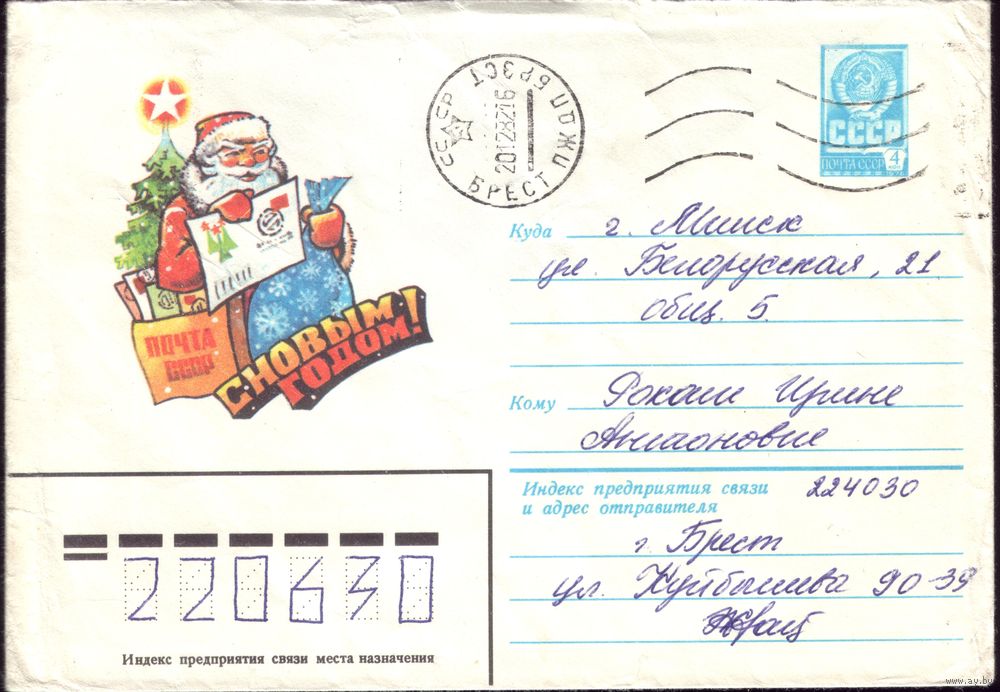 СССР
ПОЧТА СССР 4 коп
1978
СССР БРЭСТ ПЖДП
201282 16
БРЕСТ
ПОЧТА
СССР
С НОВЫМ
ГОДОМ!
Куда г. Минск
ул. Белорусская, 21
общ. 5.
Кому Рокаш Ирине
Антоновне
Индекс предприятия связи 224030
и адрес отправителя
г. Брест
ул. Куйбышева 90-39
220630
Индекс предприятия связи места назначения
www.ay.by